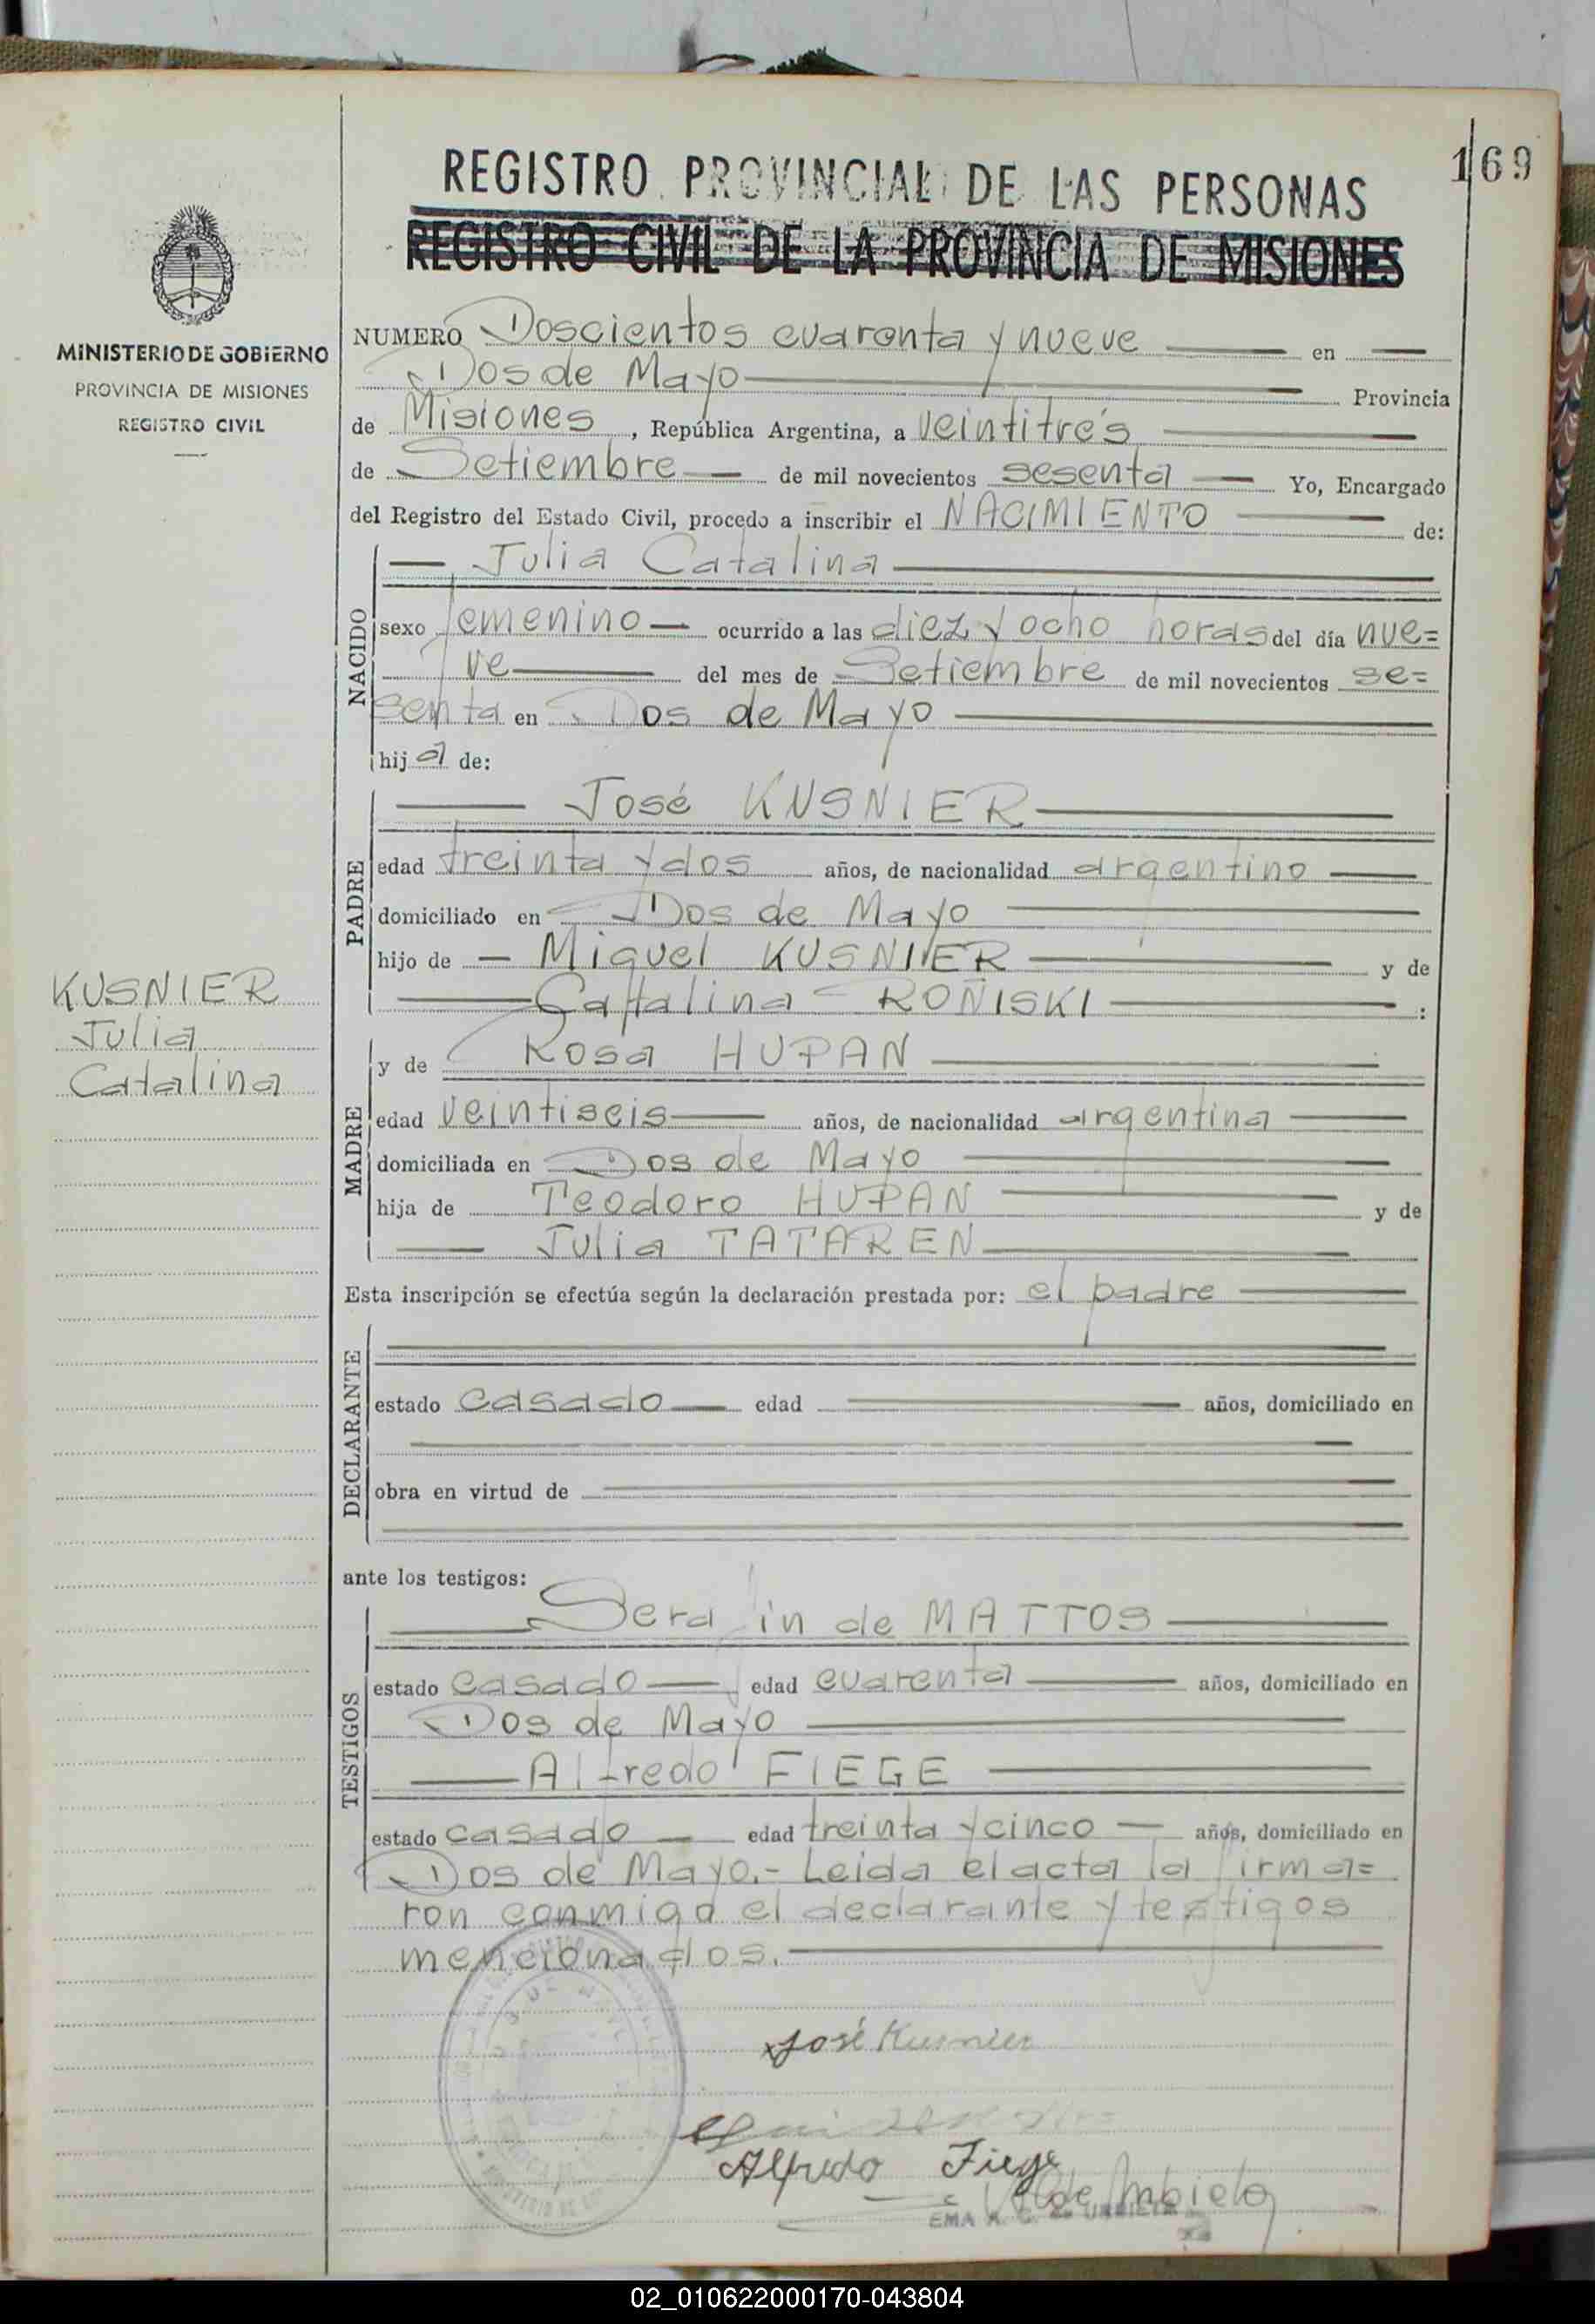 169
REGISTRO PROVINCIAL DE LAS PERSONAS
REGISTRO CIVIL DE LA PROVINCIA DE MISIONES
MINISTERIO DE GOBIERNO
PROVINCIA DE MISIONES
REGISTRO CIVIL
NUMERO Doscientos cuarenta y nueve en
Dos de Mayo Provincia
de Misiones, República Argentina, a veintitrés
de Setiembre de mil novecientos sesenta Yo, Encargado
del Registro del Estado Civil, procedo a inscribir el NACIMIENTO de:
NACIDO
Julia Catalina
sexo femenino ocurrido a las diez y ocho horas del día nue=
ve del mes de Setiembre de mil novecientos se=
senta en Dos de Mayo
hija de:
PADRE
José KUSNIER
edad treinta y dos años, de nacionalidad argentino
domiciliado en Dos de Mayo
hijo de Miguel KUSNIER y de
Catalina ROÑISKI :
KUSNIER
Julia
Catalina
MADRE
y de Rosa HUPAN
edad veintiseis años, de nacionalidad argentina
domiciliada en Dos de Mayo
hija de Teodoro HUPAN y de
Julia TATAREN
Esta inscripción se efectúa según la declaración prestada por: el padre
DECLARANTE
estado casado edad años, domiciliado en
obra en virtud de
ante los testigos:
TESTIGOS
Serafin de MATTOS
estado casado edad cuarenta años, domiciliado en
Dos de Mayo
Alfredo FIEGE
estado casado edad treinta y cinco años, domiciliado en
Dos de Mayo.- Leida el acta la firma=
ron conmigo el declarante y testigos
mencionados.
x José Kusnier
Alfredo Fiege
EMA
02_010622000170-043804